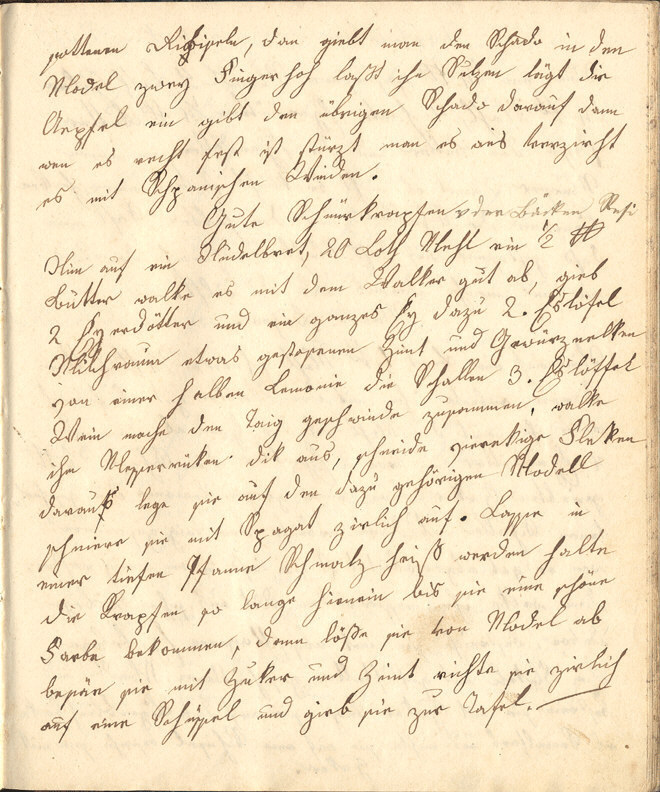 sottenen Ribiseln, dan giebt man den Schado in den
Model zwey Fingerhoh laßt ihn Sulzen lägt die
Aepfel ein gibt den übrigen Schado darauf dann
wen es recht fest ist stürzt man es aus verzirht
es mit Schpanischen Winden.
Gute Schnürkrapfen oder Bäcken
Nim auf ein Nudelbret, 20 Loth Mehl ein 1/2 ℔
Butter walke es mit dem Walker gut ab, gieb
2 Eyerdötter und ein ganzes Ey dazu 2. Eslöfel
Milchraum etwas gestosenen Zimt und Gewürznelken
von einer halben Lemonie die Schallen 3. Eslöffel
Wein mache den Taig geschwinde zusammen, walke
ihn Messerrüken dik aus, schneide vierekige Fleken
darauß lege sie auf den dazu gehörigen Modell
schniere sie mit Spagat zirlich auf. Lasse in
einer tiefen Pfanne Schmalz heiß werden halte
die Krapfen so lange hienein bis sie eine schöne
Farbe bekommen, dann löße sie von Model ab
besäe sie mit Zuker und Zimt richte sie zirlich
auf eine Schüssel und gieb sie zur Tafel.